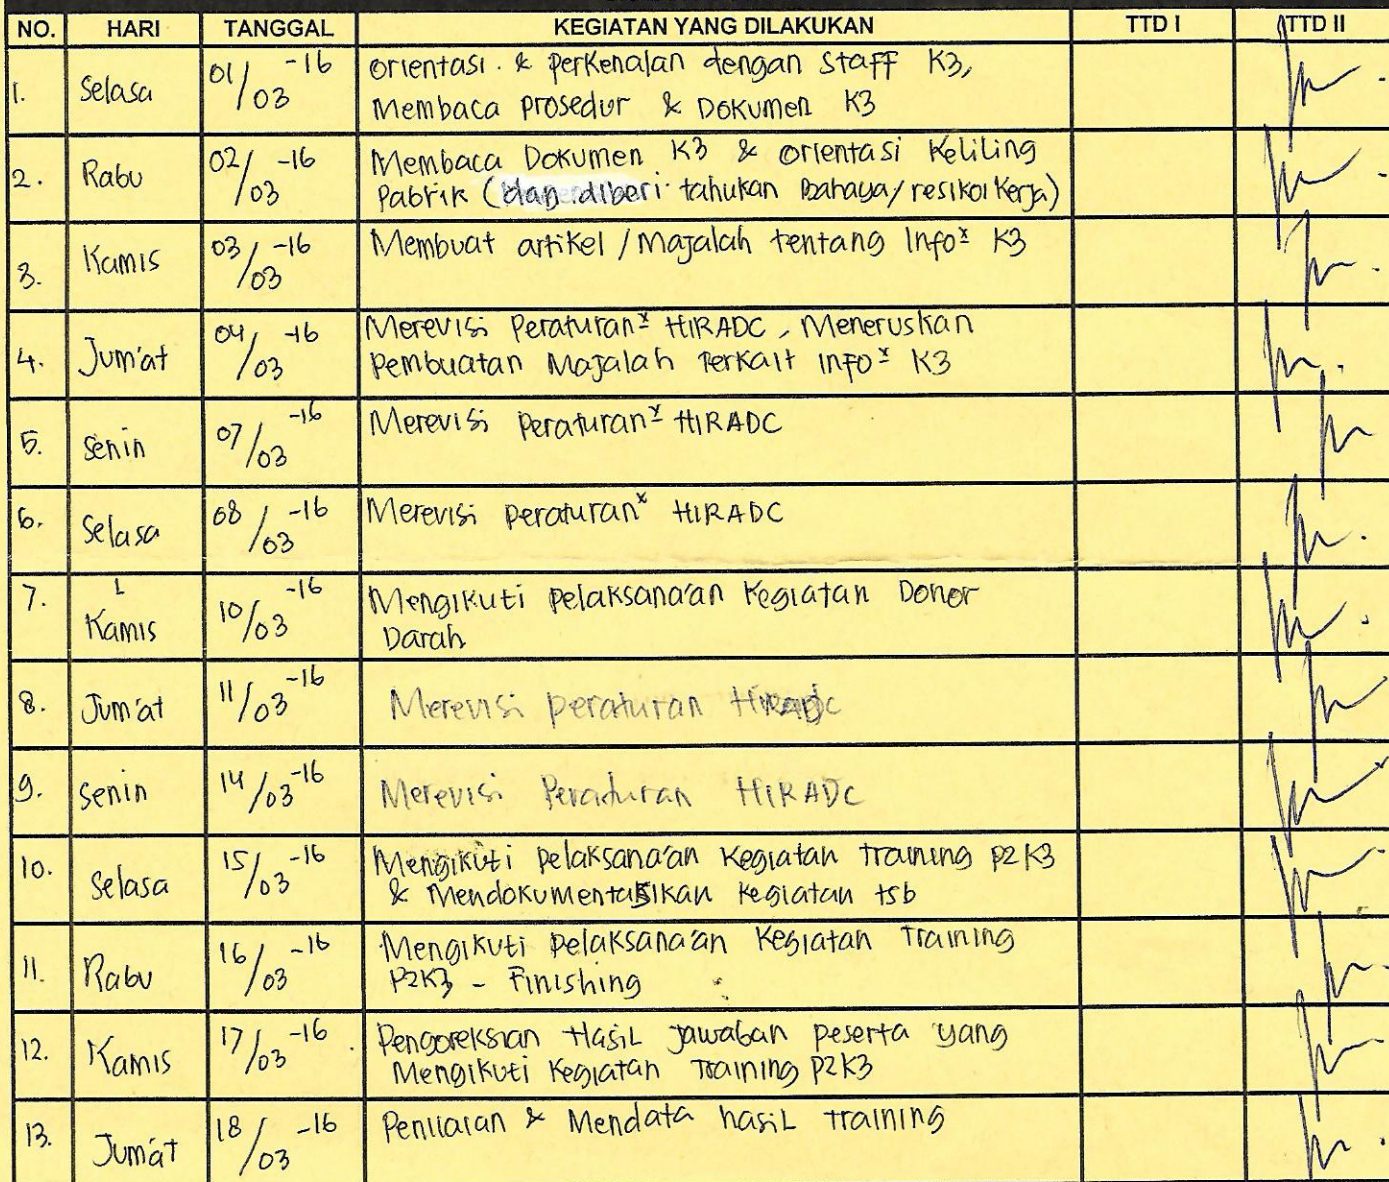 NO. HARI TANGGAL KEGIATAN YANG DILAKUKAN TTD I TTD II
1. Selasa 01/03-16 orientasi. & Perkenalan dengan Staff K3,
Membaca Prosedur & Dokumen K3
2. Rabu 02/03-16 Membaca Dokumen K3 & orientasi Keliling
Pabrik (dan diberi tahukan Bahaya/resiko Kerja)
3. Kamis 03/03-16 Membuat artikel/Majalah tentang Info² K3
4. Jum'at 04/03-16 Merevisi Peraturan² HIRADC, Meneruskan
Pembuatan Majalah Terkait Info² K3
5. Senin 07/03-16 Merevisi Peraturan² HIRADC
6. Selasa 08/03-16 Merevisi peraturan² HIRADC
7. Kamis 10/03-16 Mengikuti pelaksana'an Kegiatan Donor
Darah
8. Jum'at 11/03-16 Merevisi peraturan Hiradc
9. Senin 14/03-16 Merevisi Peraturan HIRADC
10. Selasa 15/03-16 Mengikuti pelaksana'an Kegiatan training P2K3
& Mendokumentasikan kegiatan tsb
11. Rabu 16/03-16 Mengikuti pelaksana'an Kegiatan Training
P2K3 - Finishing
12. Kamis 17/03-16 Pengoreksian Hasil jawaban peserta yang
Mengikuti Kegiatan Training P2K3
13. Jum'at 18/03-16 Penilaian & Mendata hasil training